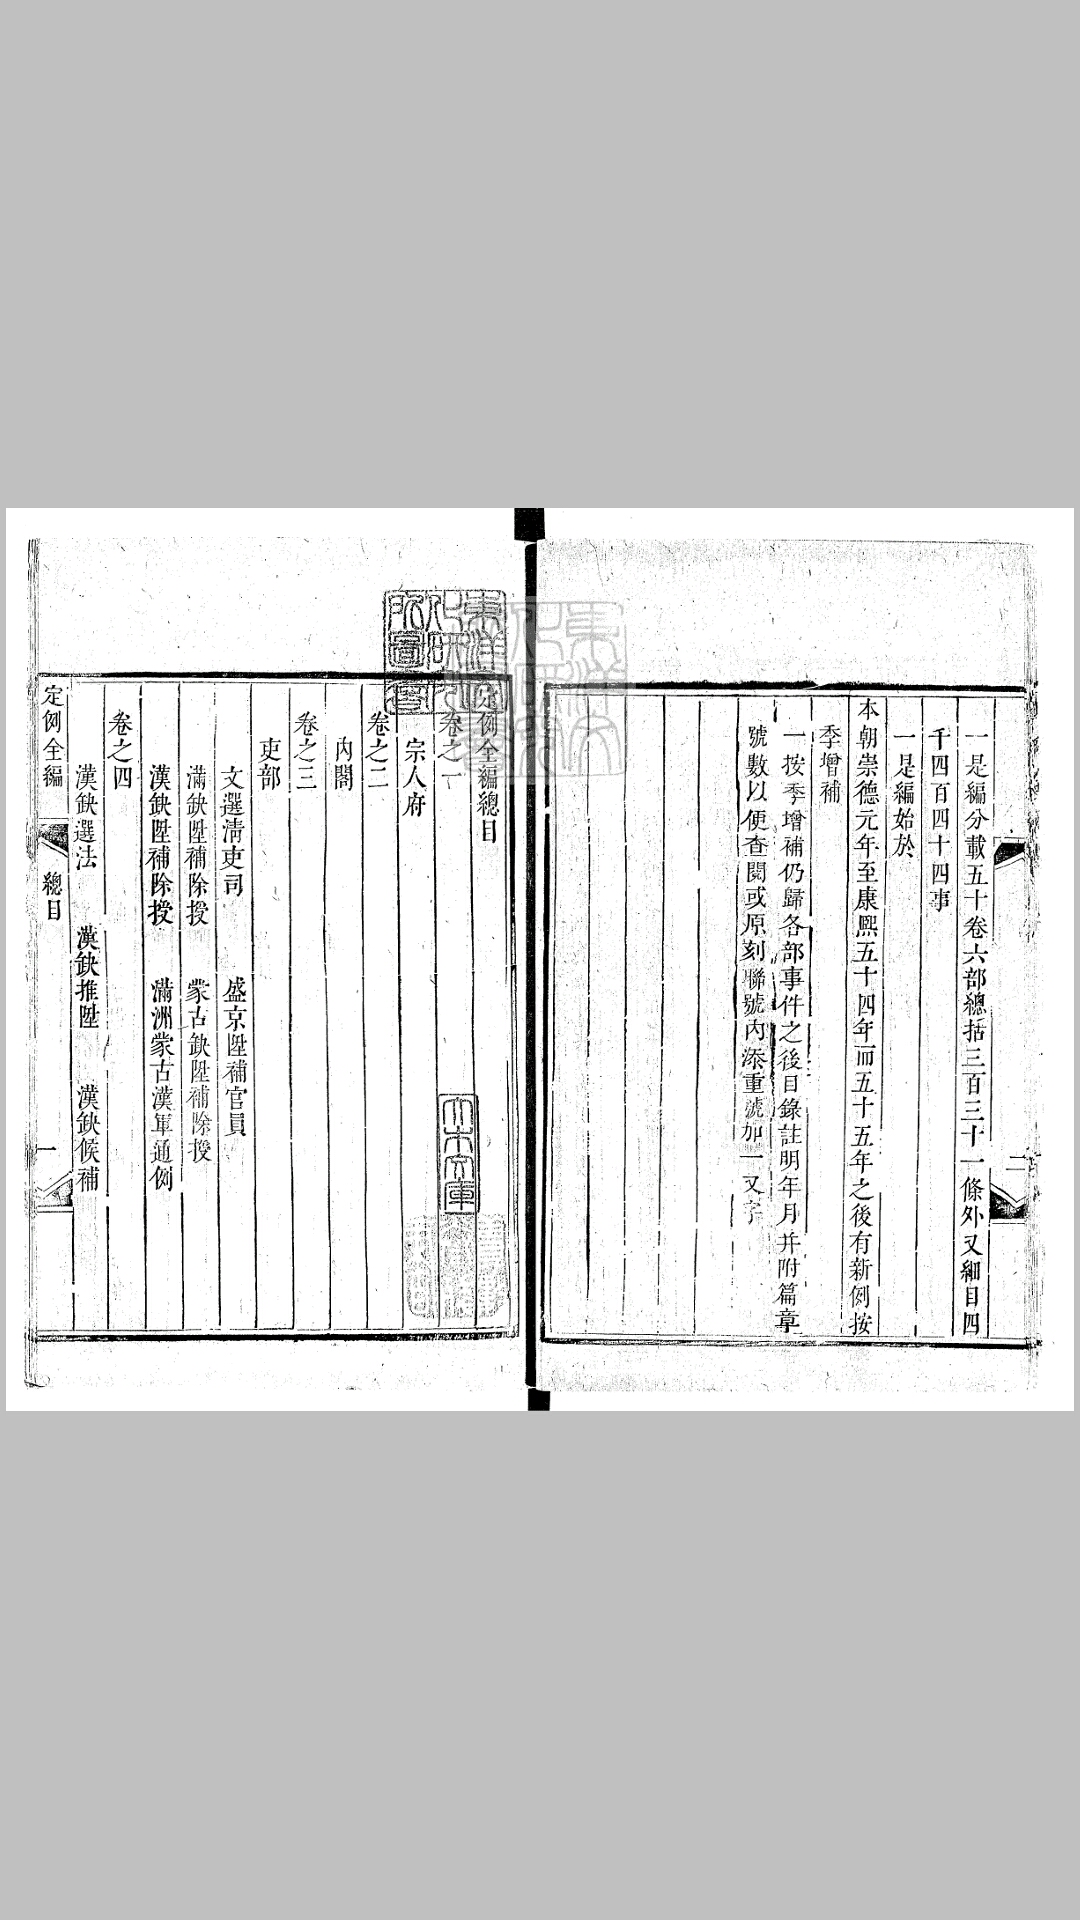 一是編分載五十卷六部總括三百三十一條外又細目四
千四百四十四事
一是編始於
本朝崇德元年至康熙五十四年而五十五年之後有新例按
季增補
一按季增補仍歸各部事件之後目錄註明年月并附篇章
號數以便查閱或原刻聯號內添重號加一又字
二
定例全編總目
卷之一
宗人府
卷之二
內閣
卷之三
吏部
文選清吏司 盛京陞補官員
滿缺陞補除授 蒙古缺陞補除授
漢缺陞補除授 滿洲蒙古漢軍通例
卷之四
漢缺選法 漢缺推陞 漢缺候補
定例全編 總目 一
大木文庫